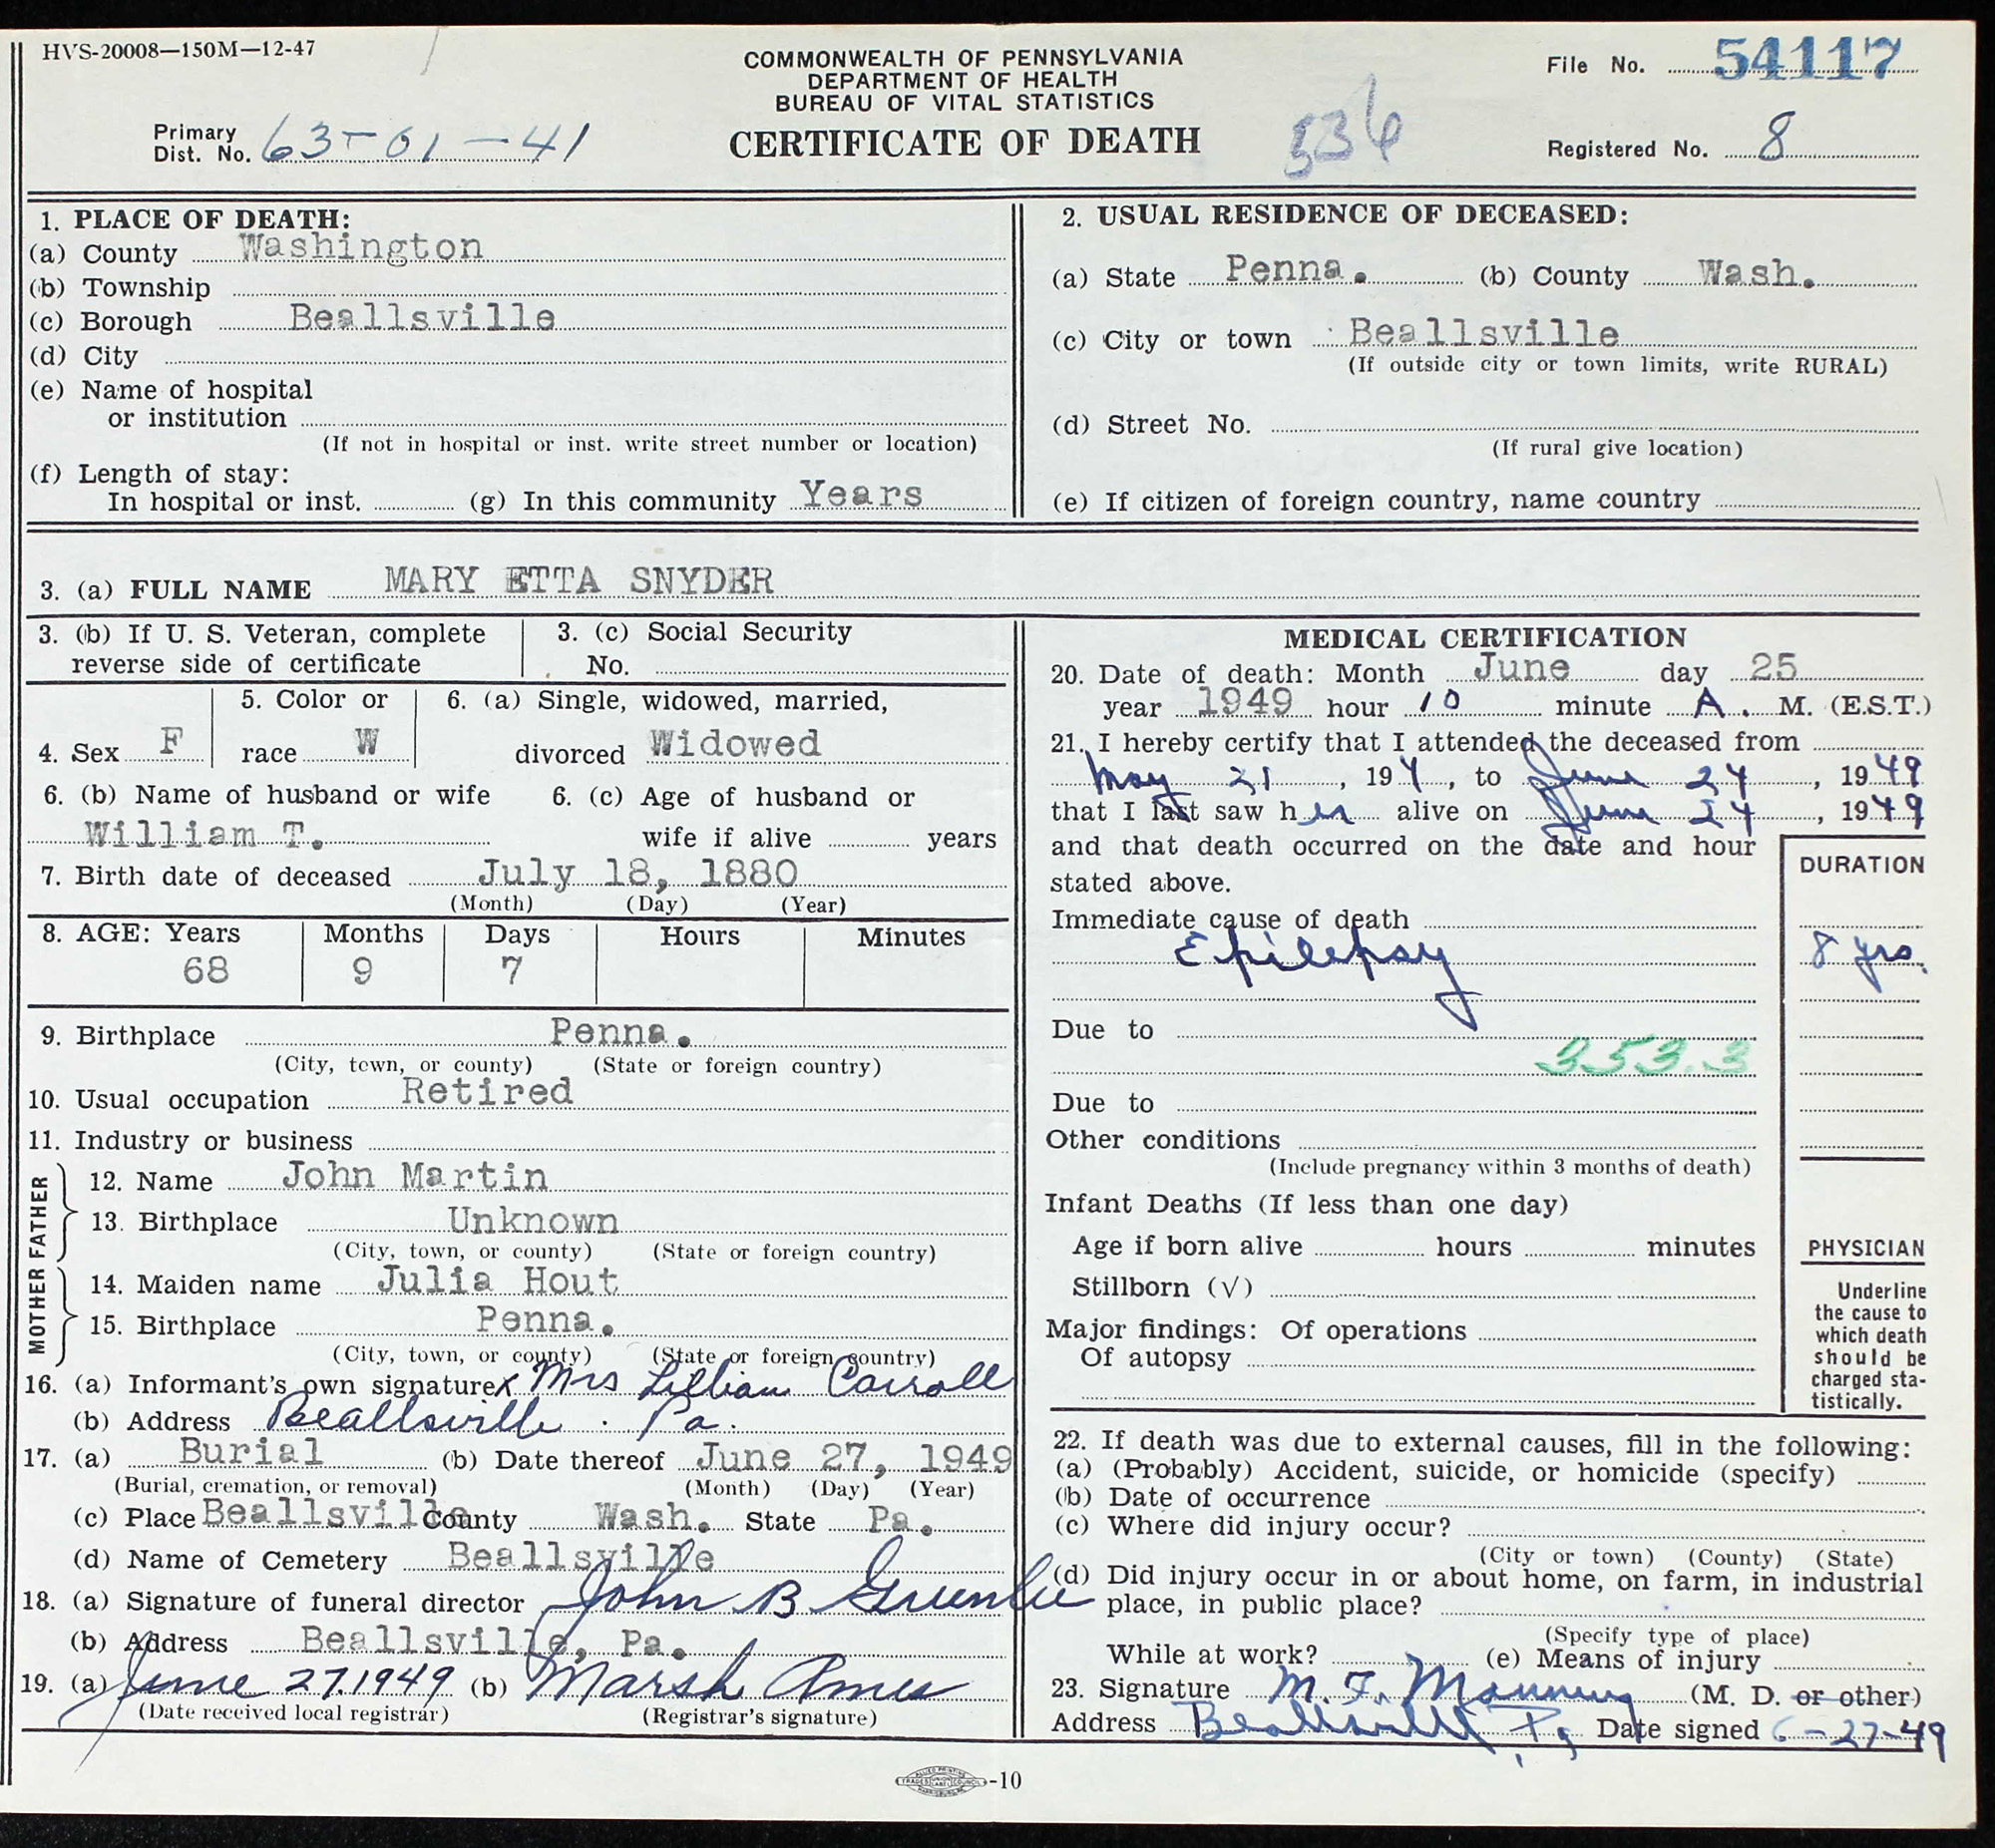 HVS-20008—150M—12-47
COMMONWEALTH OF PENNSYLVANIA
DEPARTMENT OF HEALTH
BUREAU OF VITAL STATISTICS
CERTIFICATE OF DEATH
536
File No. 54117
Primary
Dist. No. 63-01-41
Registered No. 8
1. PLACE OF DEATH:
(a) County Washington
(b) Township
(c) Borough Beallsville
(d) City
(e) Name of hospital
or institution
(If not in hospital or inst. write street number or location)
(f) Length of stay:
In hospital or inst. (g) In this community Years
2. USUAL RESIDENCE OF DECEASED:
(a) State Penna. (b) County Wash.
(c) City or town Beallsville
(If outside city or town limits, write RURAL)
(d) Street No.
(If rural give location)
(e) If citizen of foreign country, name country
3. (a) FULL NAME MARY ETTA SNYDER
3. (b) If U. S. Veteran, complete
reverse side of certificate
3. (c) Social Security
No.
4. Sex F
5. Color or
race W
6. (a) Single, widowed, married,
divorced Widowed
6. (b) Name of husband or wife
William T.
6. (c) Age of husband or
wife if alive years
7. Birth date of deceased July 18, 1880
(Month) (Day) (Year)
8. AGE: Years Months Days Hours Minutes
68 9 7
9. Birthplace Penna.
(City, town, or county) (State or foreign country)
10. Usual occupation Retired
11. Industry or business
FATHER
12. Name John Martin
13. Birthplace Unknown
(City, town, or county) (State or foreign country)
MOTHER
14. Maiden name Julia Hout
15. Birthplace Penna.
(City, town, or county) (State or foreign country)
16. (a) Informant's own signature X Mrs Lillian Carroll
(b) Address Beallsville. Pa.
17. (a) Burial (b) Date thereof June 27, 1949
(Burial, cremation, or removal) (Month) (Day) (Year)
(c) Place Beallsville County Wash. State Pa.
(d) Name of Cemetery Beallsville
18. (a) Signature of funeral director John B Greenlee
(b) Address Beallsville, Pa.
19. (a) June 27.1949 (b) Marsh Ames
(Date received local registrar) (Registrar's signature)
MEDICAL CERTIFICATION
20. Date of death: Month June day 25
year 1949 hour 10 minute A. M. (E.S.T.)
21. I hereby certify that I attended the deceased from
May 21, 194, to June 24, 1949
that I last saw her alive on June 24, 1949
and that death occurred on the date and hour
stated above.
DURATION
Immediate cause of death
Epilepsy 8 yrs.
Due to
353.3
Due to
Other conditions
(Include pregnancy within 3 months of death)
Infant Deaths (If less than one day)
Age if born alive hours minutes
Stillborn (√)
Major findings: Of operations
Of autopsy
PHYSICIAN
Underline
the cause to
which death
should be
charged sta-
tistically.
22. If death was due to external causes, fill in the following:
(a) (Probably) Accident, suicide, or homicide (specify)
(b) Date of occurrence
(c) Where did injury occur?
(City or town) (County) (State)
(d) Did injury occur in or about home, on farm, in industrial
place, in public place?
(Specify type of place)
While at work? (e) Means of injury
23. Signature M. F. Manning (M. D. or other)
Address Beallsville Pa Date signed 6-27-49
-10